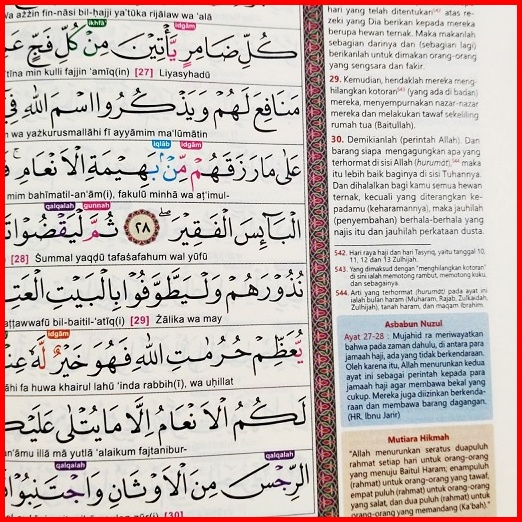 wa ażżin fin-nāsi bil-ḥajji ya'tūka rijālaw wa 'alā
ikhfā'
idgām
كُلِّ ضَامِرٍ يَّأْتِيْنَ مِنْ كُلِّ فَجٍّ
tīna min kulli fajjin 'amīq(in) [27] Liyasyhadū
مَنَافِعَ لَهُمْ وَيَذْكُرُوا اسْمَ اللّٰهِ
wa yażkurusmallāhi fī ayyāmim ma'lūmātin
iqlāb
idgām
عَلٰى مَا رَزَقَهُمْ مِّنْۢ بَهِيْمَةِ الْاَنْعَامِ
mim bahīmatil-an'ām(i), fakulū minhā wa aṭ'imul-
qalqalah
gunnah
الْبَاۤىِٕسَ الْفَقِيْرَ ۖ ٢٨ ثُمَّ لْيَقْضُوْا
[28] Ṡummal yaqḍū tafaṡahum wal yūfū
نُذُوْرَهُمْ وَلْيَطَّوَّفُوْا بِالْبَيْتِ
aṭṭawwafū bil-baitil-'atīq(i) [29] Żālika wa may
idgām
يُّعَظِّمْ حُرُمٰتِ اللّٰهِ فَهُوَ خَيْرٌ لَّهٗ
āhi fa huwa khairul lahū 'inda rabbih(ī), wa uḥillat
لَكُمُ الْاَنْعَامُ اِلَّا مَا يُتْلٰى
an'āmu illā mā yutlā 'alaikum fajtanibur-
qalqalah
qalqalah
الرِّجْسَ مِنَ الْاَوْثَانِ وَاجْتَنِبُوْا
[30]
hari yang telah ditentukan⁵⁴² atas re-
zeki yang Dia berikan kepada mereka
berupa hewan ternak. Maka makanlah
sebagian darinya dan (sebagian lagi)
berikanlah untuk dimakan orang-orang
yang sengsara dan fakir.
29. Kemudian, hendaklah mereka meng-
hilangkan kotoran⁵⁴³ (yang ada di badan)
mereka, menyempurnakan nazar-nazar
mereka dan melakukan tawaf sekeliling
rumah tua (Baitullah).
30. Demikianlah (perintah Allah). Dan
barang siapa mengagungkan apa yang
terhormat di sisi Allah (hurumāt),⁵⁴⁴ maka
itu lebih baik baginya di sisi Tuhannya.
Dan dihalalkan bagi kamu semua hewan
ternak, kecuali yang diterangkan ke-
padamu (keharamannya), maka jauhilah
(penyembahan) berhala-berhala yang
najis itu dan jauhilah perkataan dusta.
542. Hari raya haji dan hari Tasyriq, yaitu tanggal 10,
11, 12 dan 13 Zulhijah.
543. Yang dimaksud dengan "menghilangkan kotoran"
di sini ialah memotong rambut, memotong kuku,
dan sebagainya.
544. Arti yang terhormat (hurumāt) pada ayat ini
ialah bulan haram (Muharam, Rajab, Zulkaidah,
Zulhijah), tanah haram, dan maqam Ibrahim.
Asbabun Nuzul
Ayat 27-28 : Mujahid ra meriwayatkan
bahwa pada zaman dahulu, di antara para
jamaah haji, ada yang tidak berkendaraan.
Oleh karena itu, Allah menurunkan kedua
ayat ini sebagai perintah kepada para
jamaah haji agar membawa bekal yang
cukup. Mereka juga diizinkan berkenda-
raan dan membawa barang dagangan.
(HR. Ibnu Jarir)
Mutiara Hikmah
"Allah menurunkan seratus duapuluh
rahmat setiap hari untuk orang-orang
yang menuju Baitul Haram; enampuluh
(rahmat) untuk orang-orang yang tawaf,
empat puluh (rahmat) untuk orang-orang
yang salat, dan dua puluh (rahmat) untuk
orang-orang yang memandang (Ka'bah)."